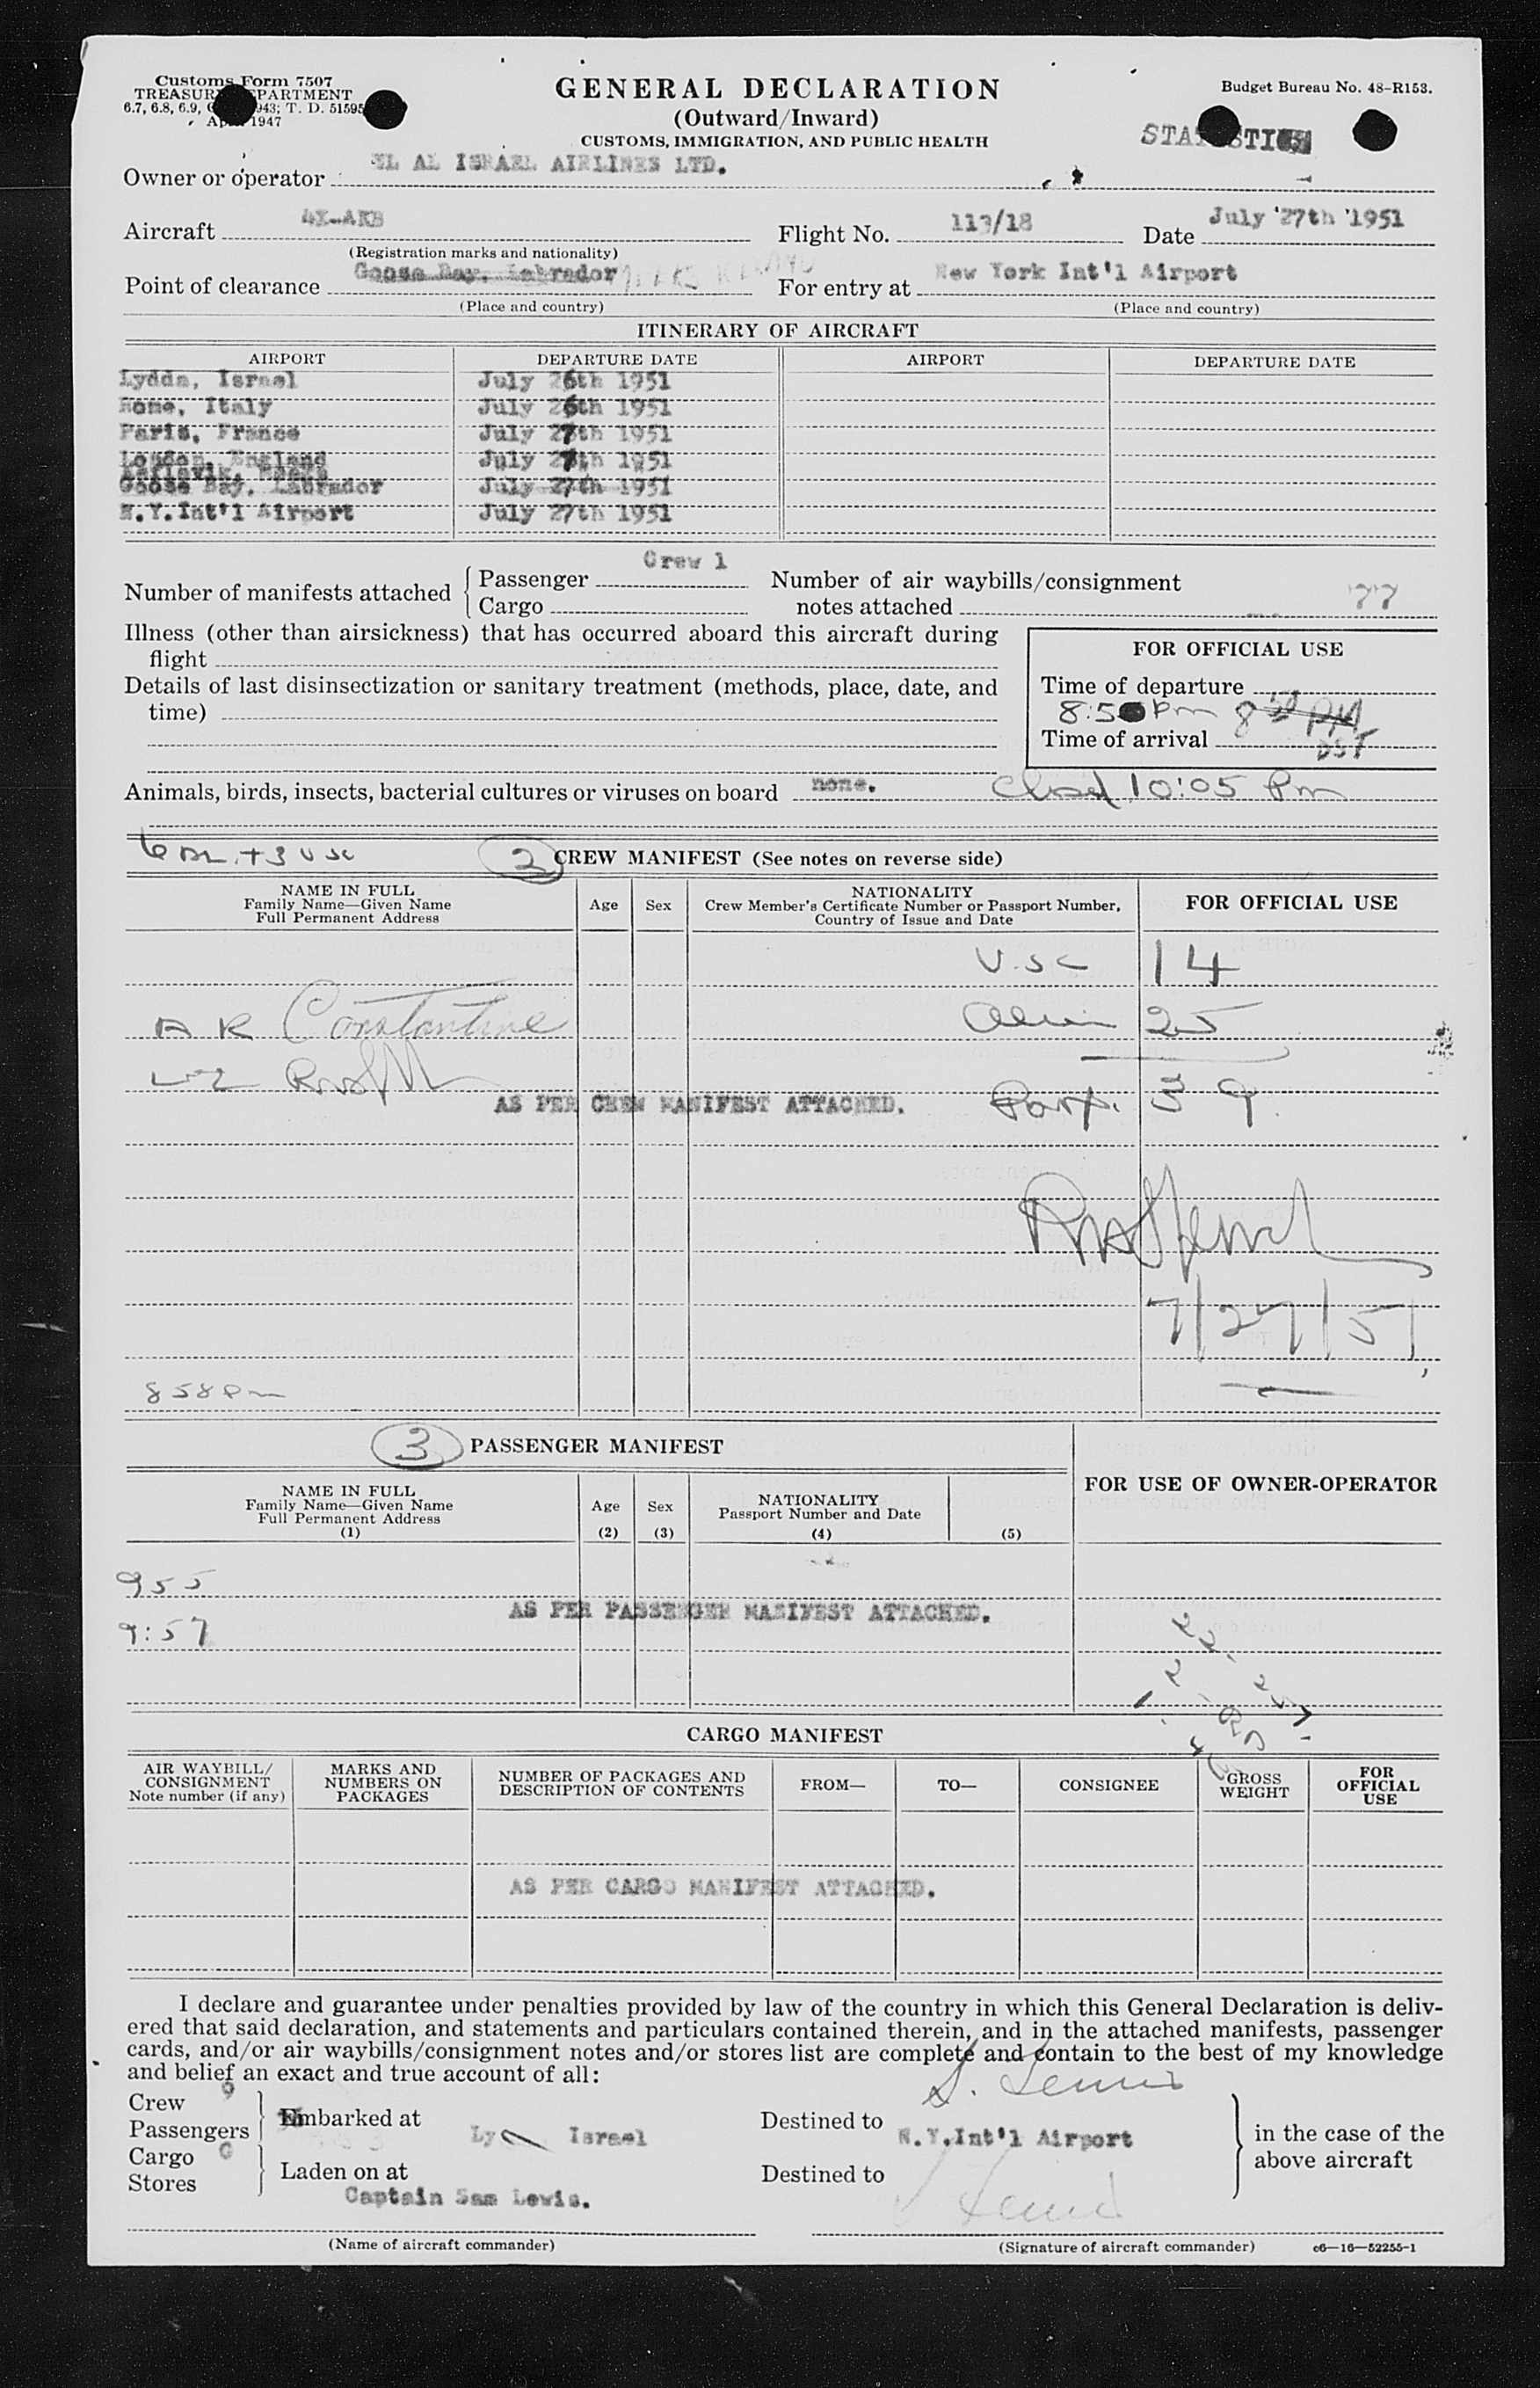 Customs Form 7507
TREASURY DEPARTMENT
6.7, 6.8, 6.9, 1943; T. D. 51595
April 1947
GENERAL DECLARATION
(Outward/Inward)
CUSTOMS, IMMIGRATION, AND PUBLIC HEALTH
Budget Bureau No. 48-R153.
STATISTICS
Owner or operator EL AL ISRAEL AIRLINES LTD.
Aircraft 4X-AKB Flight No. 113/18 Date July 27th 1951
(Registration marks and nationality)
Point of clearance Goose Bay, Labrador For entry at New York Int'l Airport
(Place and country) (Place and country)
ITINERARY OF AIRCRAFT
AIRPORT DEPARTURE DATE AIRPORT DEPARTURE DATE
Lydda, Israel July 26th 1951
Rome, Italy July 26th 1951
Paris, France July 27th 1951
London, England July 27th 1951
Keflavik,
Goose Bay, Labrador July 27th 1951
N.Y.Int'l Airport July 27th 1951
Crew 1
Number of manifests attached { Passenger
Cargo
Number of air waybills/consignment
notes attached 77
Illness (other than airsickness) that has occurred aboard this aircraft during
flight
Details of last disinsectization or sanitary treatment (methods, place, date, and
time)
FOR OFFICIAL USE
Time of departure
8:50 Pm 8 50 PM
Time of arrival DST
Animals, birds, insects, bacterial cultures or viruses on board none. Closed 10:05 Pm
6 + 3 USC
2 CREW MANIFEST (See notes on reverse side)
NAME IN FULL
Family Name—Given Name
Full Permanent Address
Age Sex
NATIONALITY
Crew Member's Certificate Number or Passport Number,
Country of Issue and Date
FOR OFFICIAL USE
U.S.C 14
A R Constantine Alien 25
AS PER CREW MANIFEST ATTACHED. 39
7/27/51
8 58 Pm
3 PASSENGER MANIFEST
NAME IN FULL
Family Name—Given Name
Full Permanent Address
(1)
Age
(2)
Sex
(3)
NATIONALITY
Passport Number and Date
(4)
(5)
FOR USE OF OWNER-OPERATOR
9 55
AS PER PASSENGER MANIFEST ATTACHED.
9:57
CARGO MANIFEST
AIR WAYBILL/
CONSIGNMENT
Note number (if any)
MARKS AND
NUMBERS ON
PACKAGES
NUMBER OF PACKAGES AND
DESCRIPTION OF CONTENTS
FROM—
TO—
CONSIGNEE
GROSS
WEIGHT
FOR
OFFICIAL
USE
AS PER CARGO MANIFEST ATTACHED.
I declare and guarantee under penalties provided by law of the country in which this General Declaration is deliv-
ered that said declaration, and statements and particulars contained therein, and in the attached manifests, passenger
cards, and/or air waybills/consignment notes and/or stores list are complete and contain to the best of my knowledge
and belief an exact and true account of all:
S. Lewis
Crew 9
Passengers
Embarked at Israel Destined to N.Y.Int'l Airport
Cargo
Stores
Laden on at Destined to
in the case of the
above aircraft
Captain Sam Lewis. S Lewis
(Name of aircraft commander) (Signature of aircraft commander) c6—16—52255-1